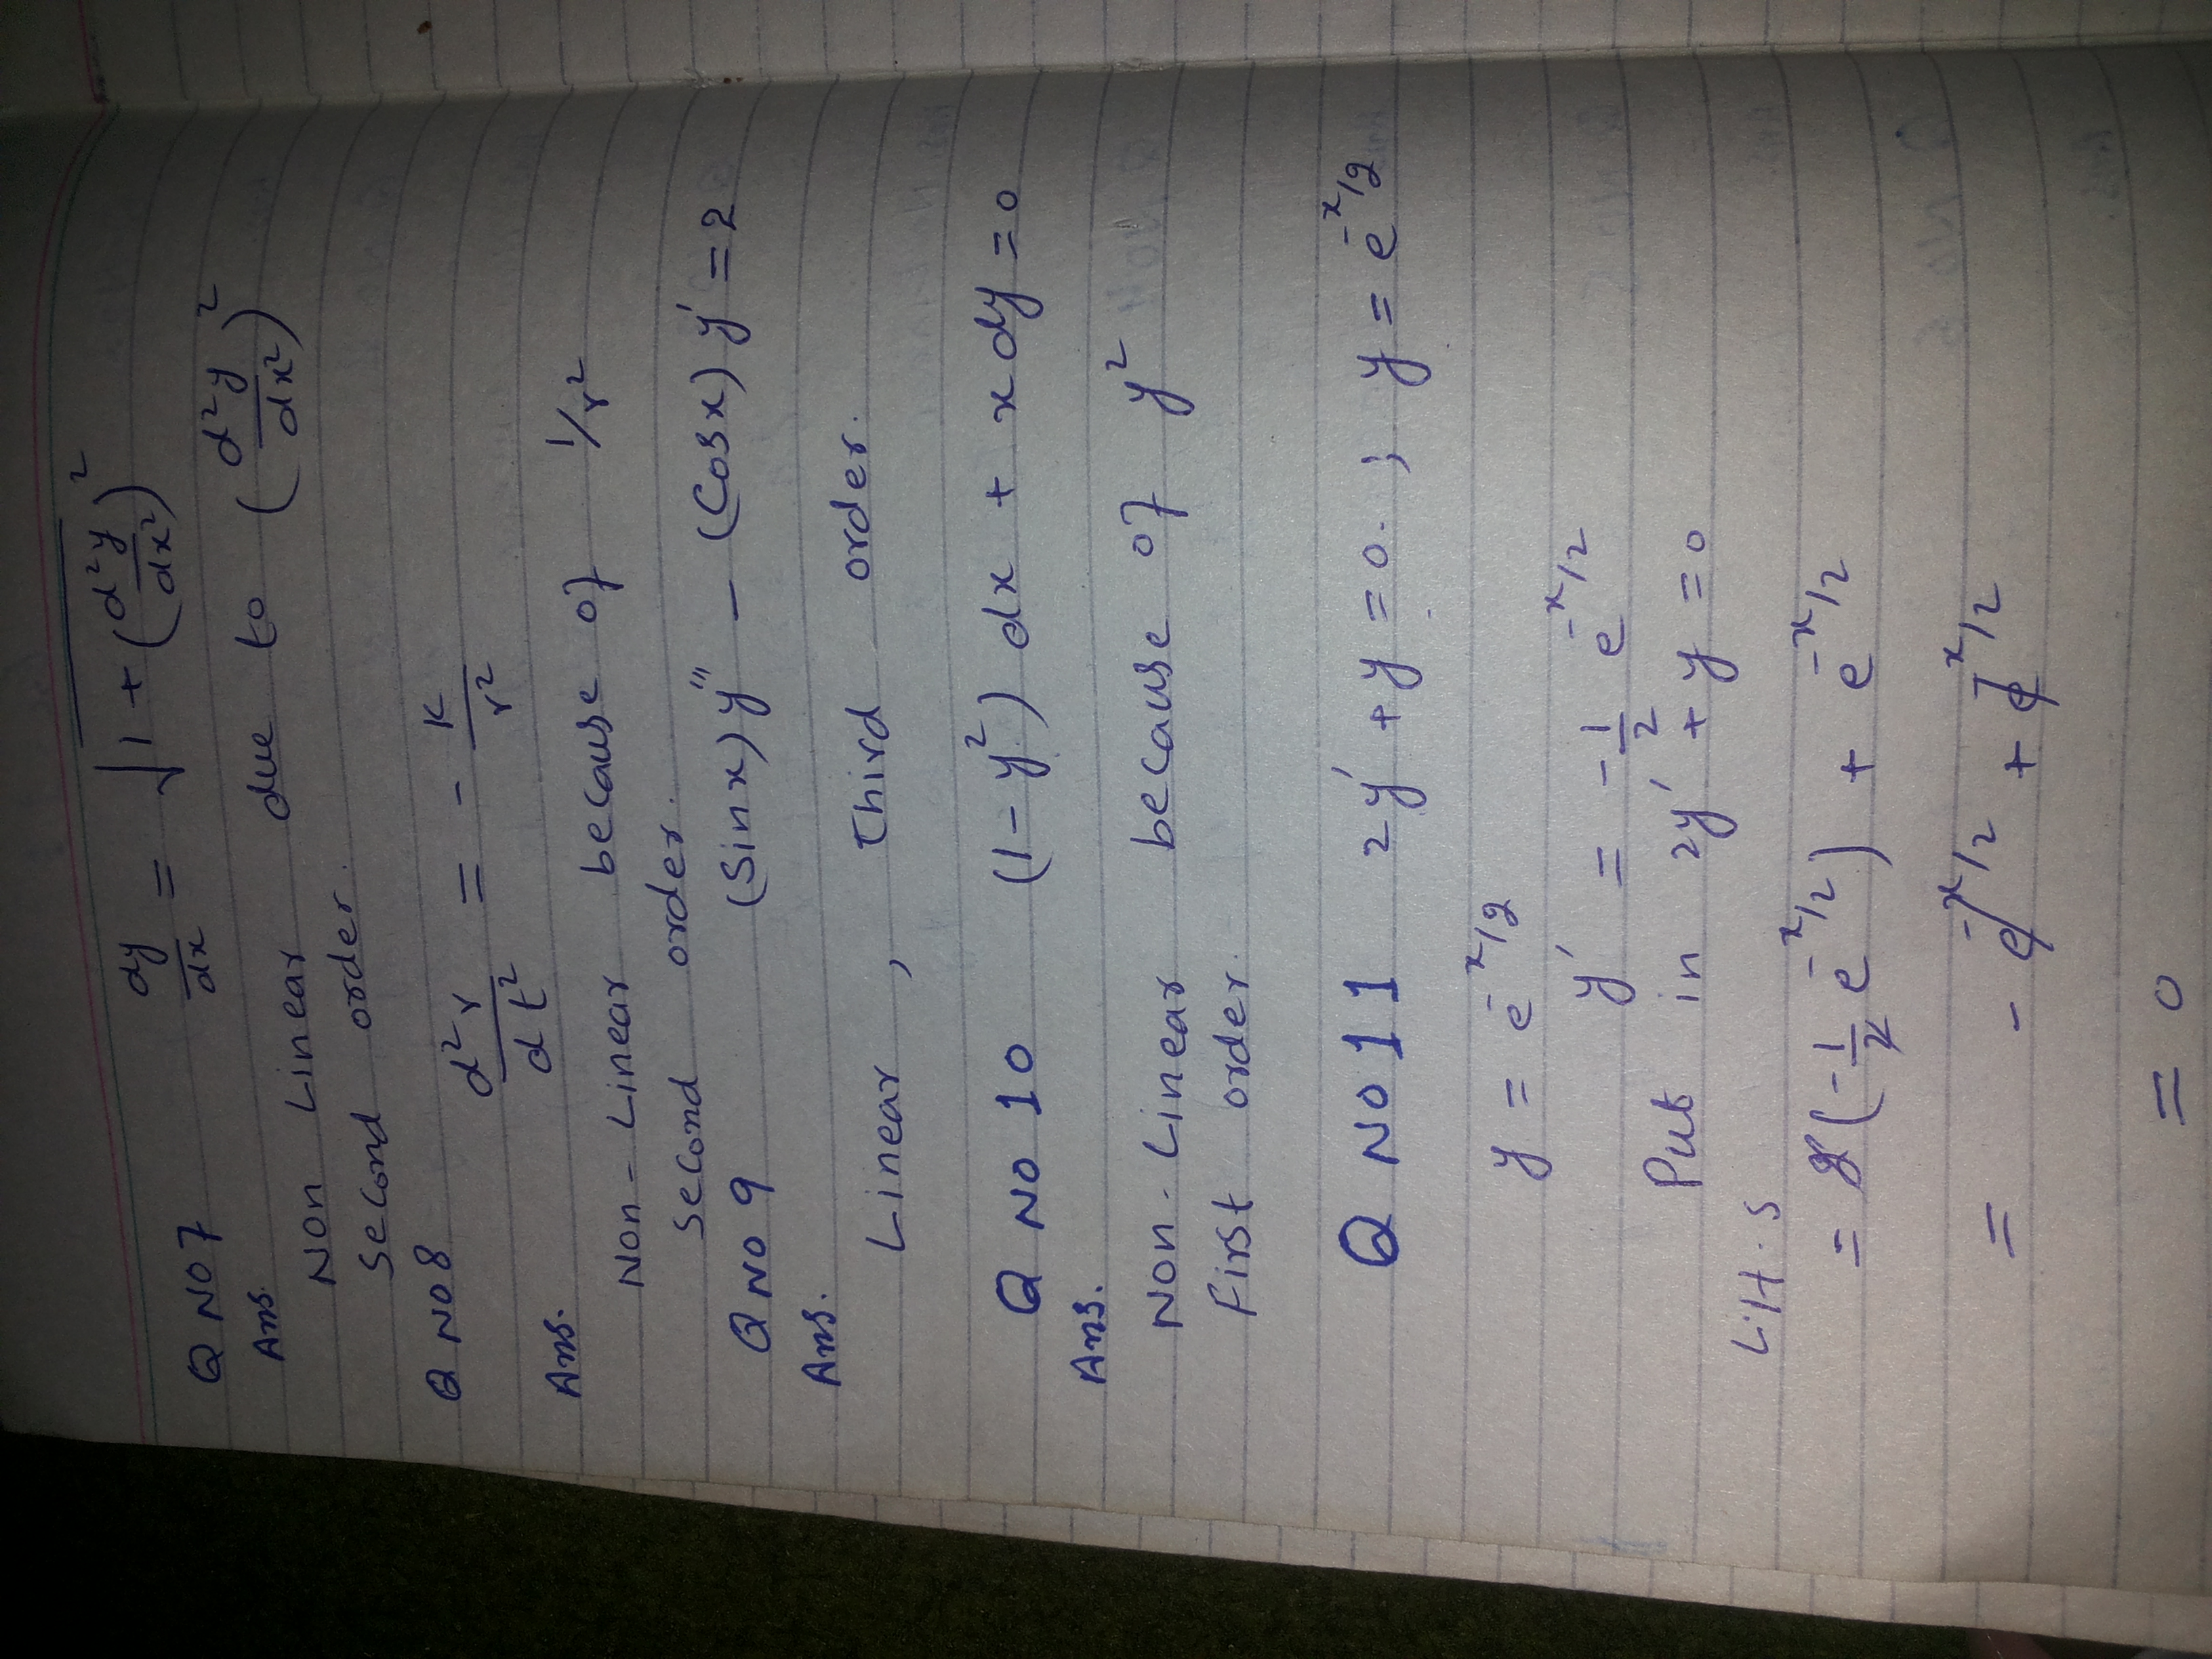 Q NO 7 dy/dx = √1 + (d²y/dx²)²
Ans.
Non Linear due to (d²y/dx²)²
Second order.
Q NO 8 d²r/dt² = - K/r²
Ans.
Non-Linear because of 1/r²
Second order.
Q NO 9 (Sinx) y''' - (Cosx) y' = 2
Ans.
Linear, third order.
Q NO 10 (1-y²) dx + x dy = 0
Ans.
Non-Linear because of y²
First order.
Q NO 11 2y' + y = 0. ; y = e^-x/2
y = e^-x/2
y' = -1/2 e^-x/2
Put in 2y' + y = 0
L.H.S
= 2(-1/2 e^-x/2) + e^-x/2
= - e^-x/2 + e^-x/2
= 0